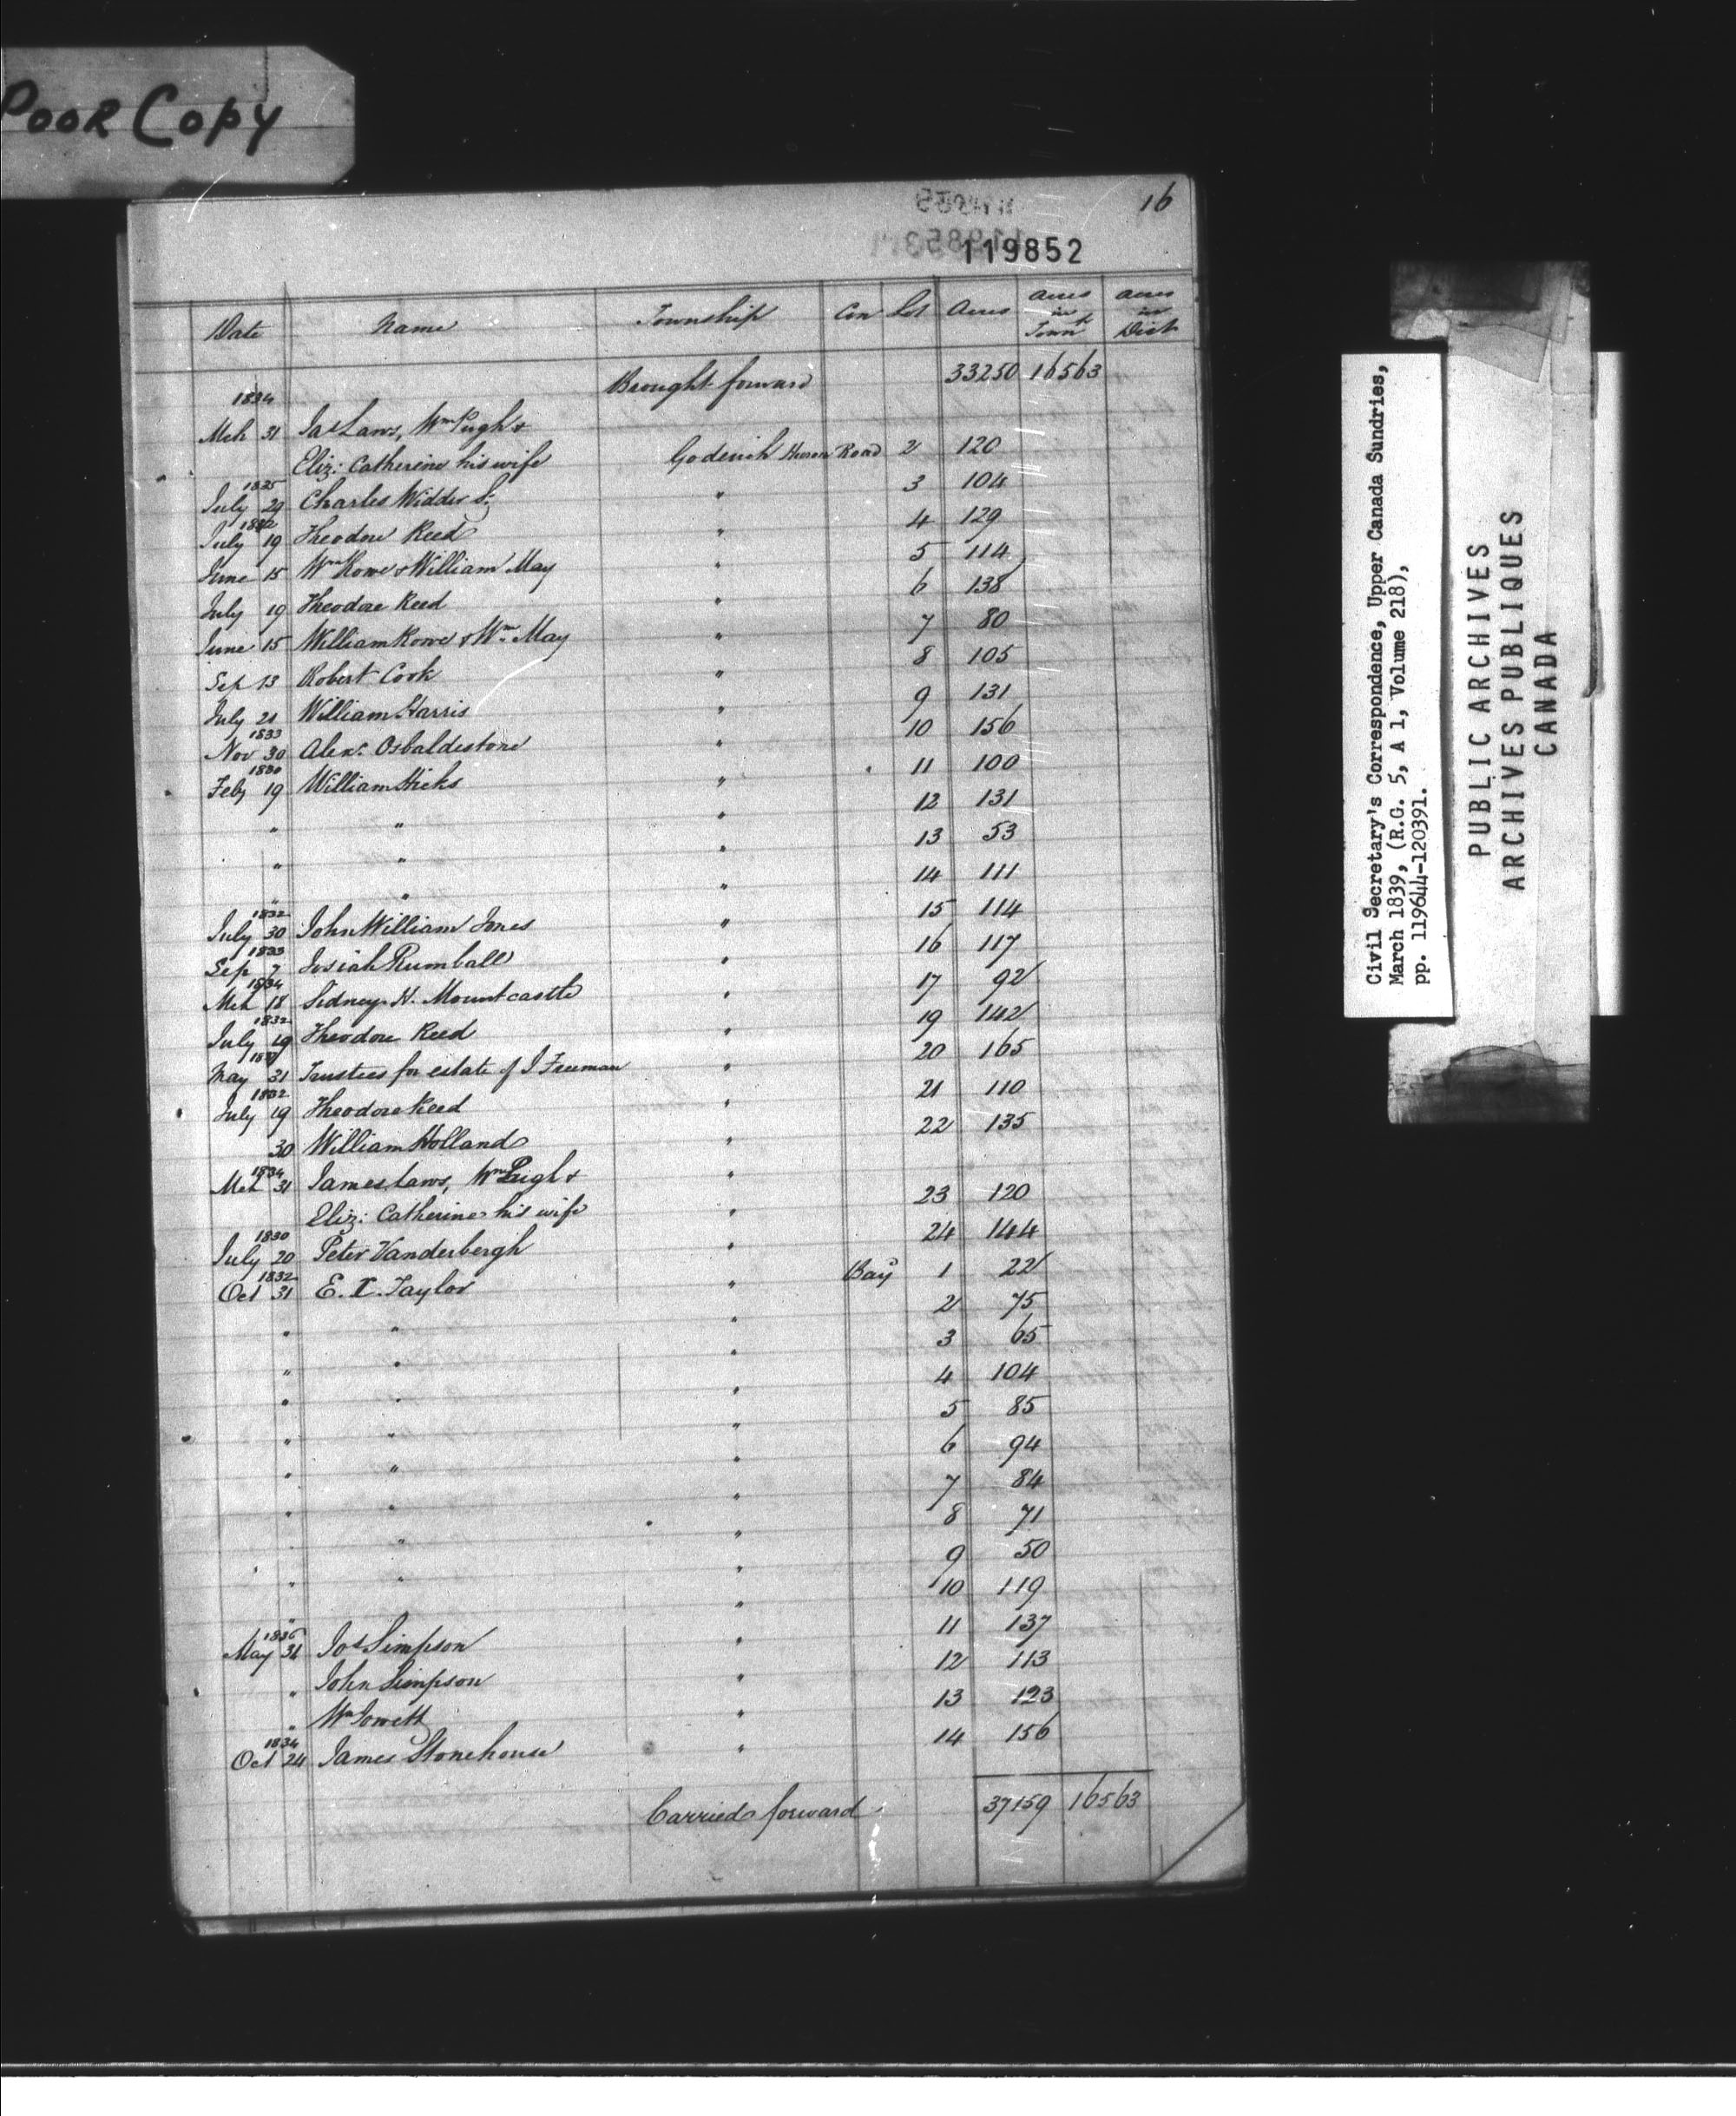 Poor Copy
16
119852
Date Name Township Con Lot Acres Acres in Town^p Acres in Dist
Brought forward 33250 16563
1834
Mch 31 Jas Laws, Wm Pugh &
Eliz: Catherine his wife Goderich Huron Road 2 120
1835
July 29 Charles Widder Sr " 3 104
1832
July 19 Theodore Reed " 4 129
June 15 Wm Rowe & William May " 5 114
July 19 Theodore Reed " 6 138
June 15 William Rowe & Wm May " 7 80
Sep 13 Robert Cook " 8 105
July 21 William Harris " 9 131
1833
Nov 30 Alexr. Osbaldestone " 10 156
1830
Feby 19 William Hicks " 11 100
" " " 12 131
" " " 13 53
" " " 14 111
1832
July 30 John William Jones " 15 114
1833
Sep 7 Josiah Rumball " 16 117
1834
Mch 18 Sidney H. Mountcastle " 17 92
1832
July 19 Theodore Reed " 19 142
May 31 Trustees for estate of J Freeman " 20 165
1832
July 19 Theodore Reed " 21 110
30 William Holland " 22 135
1834
Mch 31 James Laws, Wm Pugh & "
Eliz: Catherine his wife " 23 120
1830
July 20 Peter Vanderbergh " 24 144
1832
Oct 31 E. C. Taylor " Bay 1 22
" " " 2 75
" " " 3 65
" " " 4 104
" " " 5 85
" " " 6 94
" " " 7 84
" " " 8 71
" " " 9 50
" " 10 119
1836
May 31 Jos Simpson " 11 137
" John Simpson " 12 113
" Wm Jowett " 13 123
1834
Oct 24 James Stonehouse " 14 156
Carried forward 37159 16563
Civil Secretary's Correspondence, Upper Canada Sundries,
March 1839, (R.G. 5, A 1, Volume 218),
pp. 119644-120391.
PUBLIC ARCHIVES
ARCHIVES PUBLIQUES
CANADA